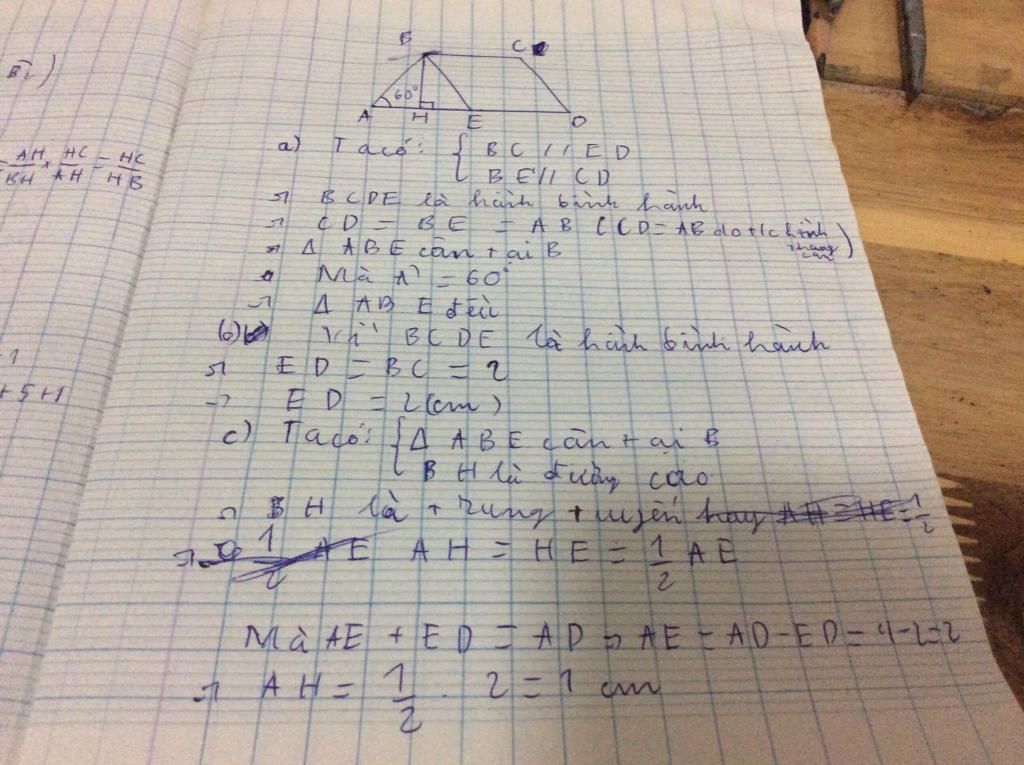 B C
60°
A H E D
= AH/BH × HC/AH = HC/HB
a) Ta có: { BC // ED
BE // CD
=> BCDE là hình bình hành
=> CD = BE = AB (CD = AB do t/c hình thang cân)
=> Δ ABE cân tại B
Mà A = 60°
=> Δ ABE đều
b) Vì BCDE là hình bình hành
=> ED = BC = 2
=> ED = 2 (cm)
+5+1
c) Ta có: { Δ ABE cân tại B
BH là đường cao
=> BH là trung tuyến hay AH = HE = 1/2
=> 1/2 AE AH = HE = 1/2 AE
Mà AE + ED = AD => AE = AD - ED = 4 - 2 = 2
=> AH = 1/2 . 2 = 1 cm